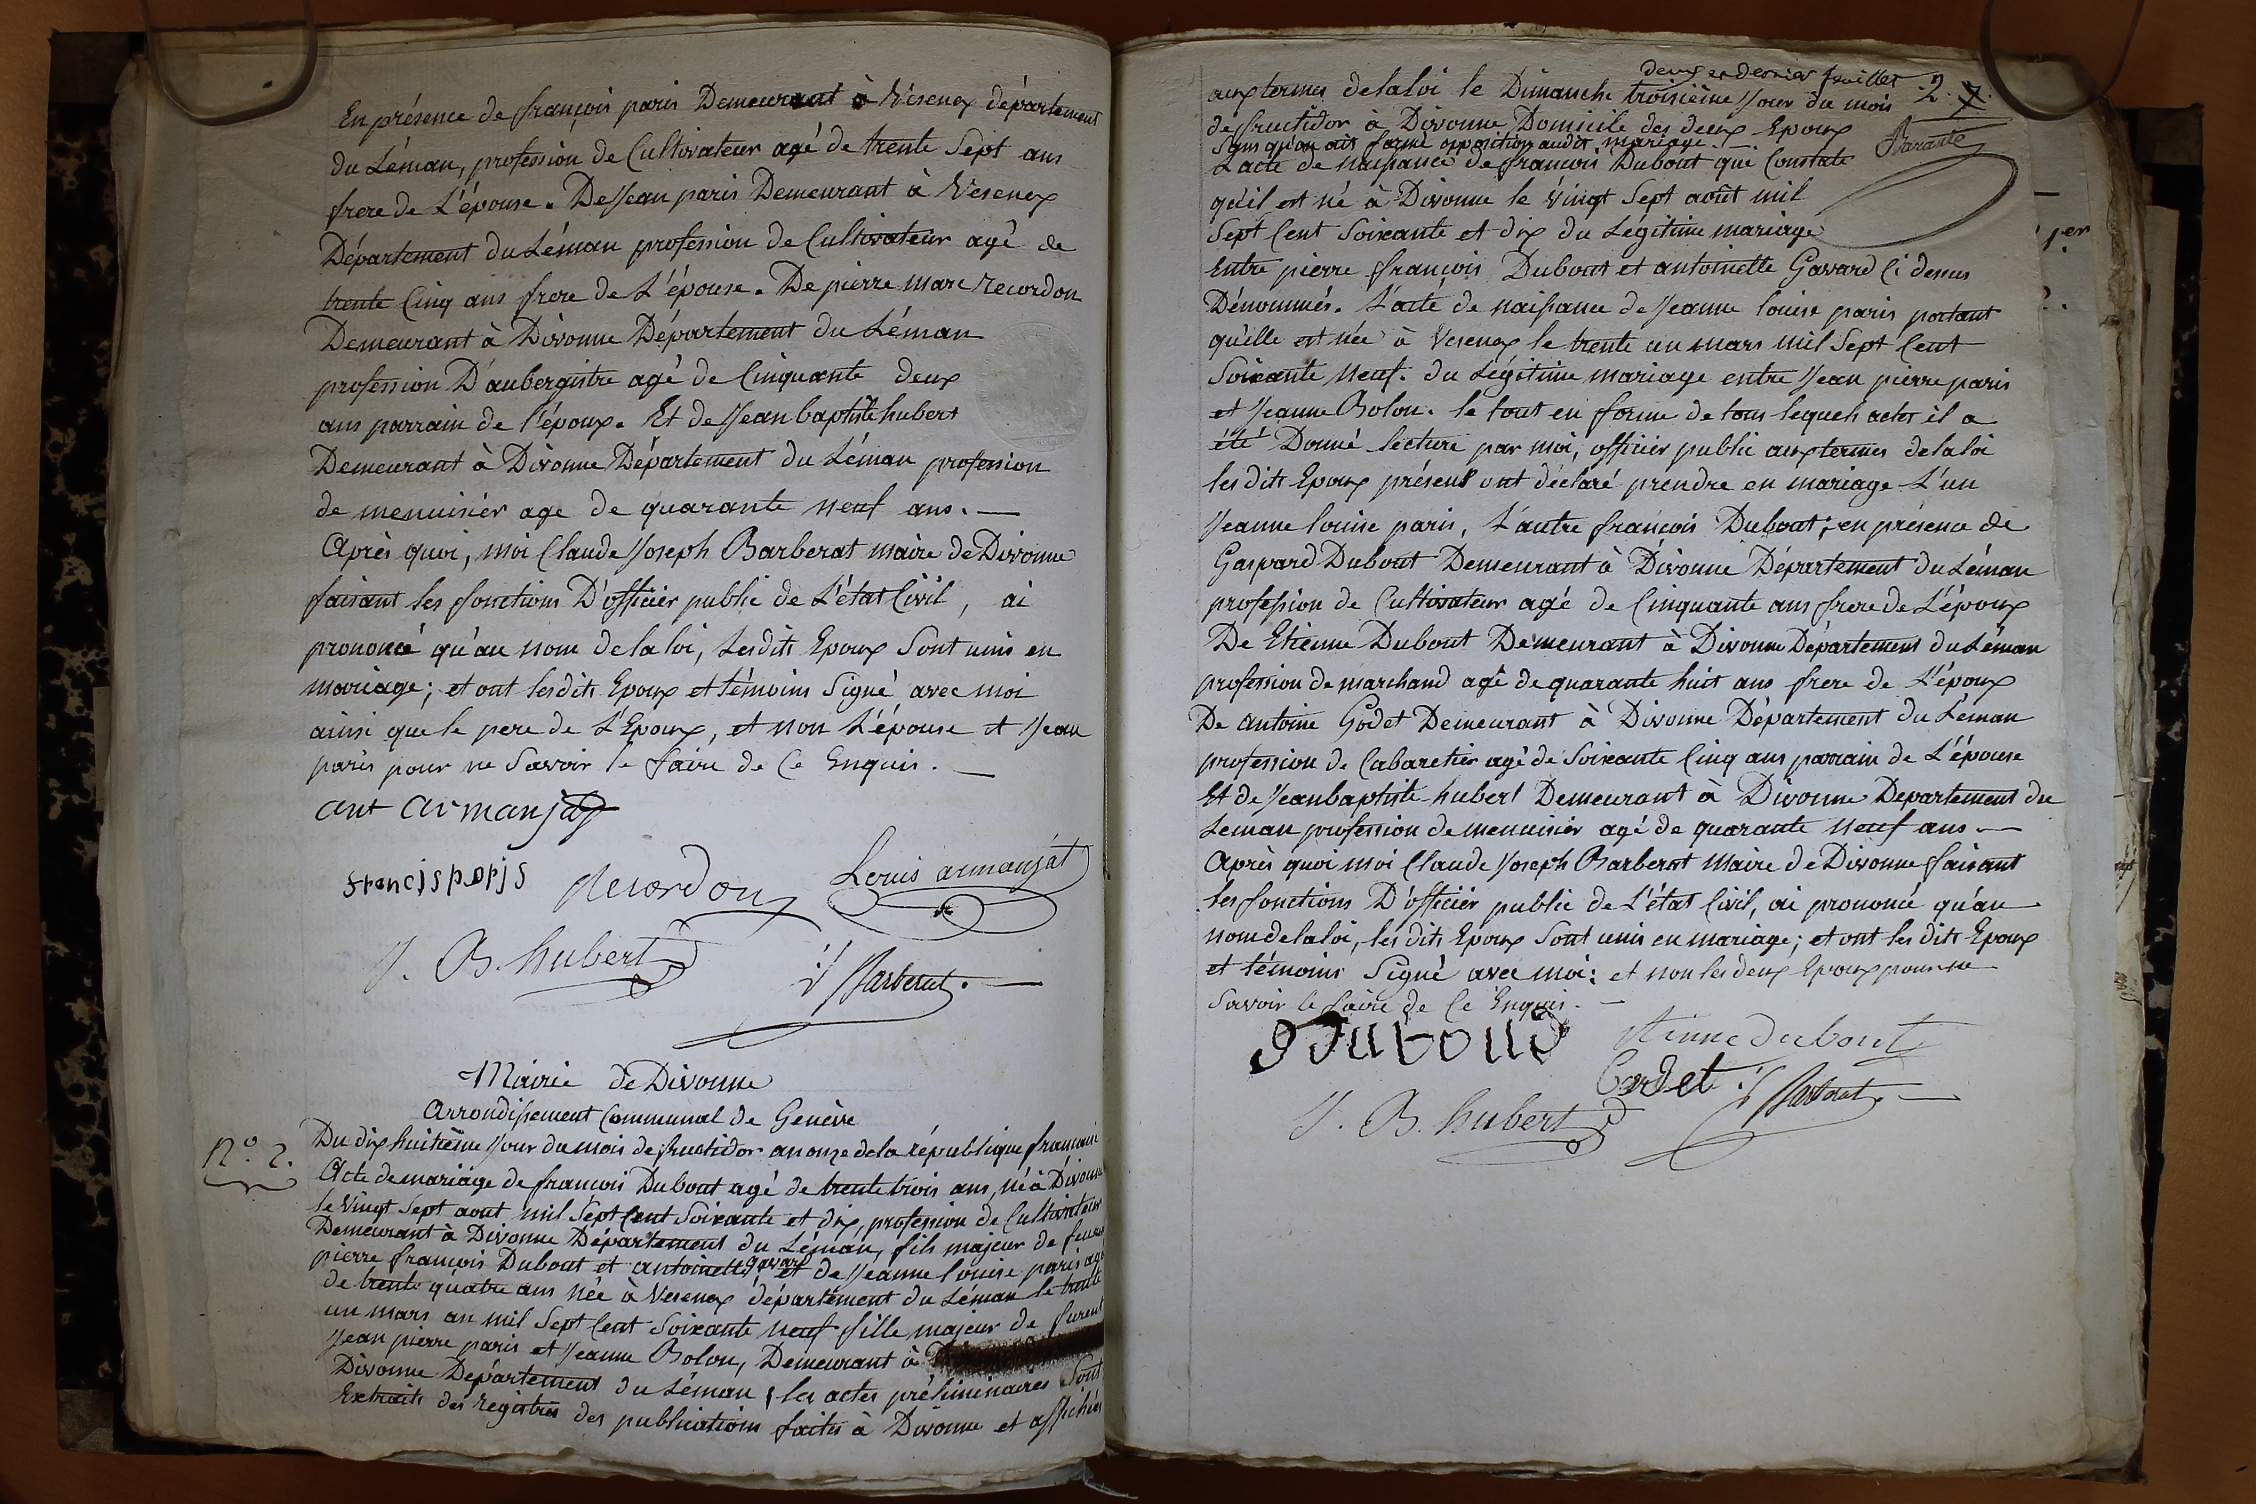 En présence de françois paris Demeurant à Vesenex département
du Léman, profession de Cultivateur agé de trente Sept ans
frere de L'épouse. De Jean paris Demeurant à Vesenex
Département du Léman profession de Cultivateur agé de
trente Cinq ans frere de L'épouse. De pierre marc recordon
Demeurant à Divonne Département du Léman
profession D'aubergiste agé de Cinquante deux
ans parrain de l'époux. Et de Jean baptiste hubert
Demeurant à Divonne Département du Léman profession
de menuisier age de quarante neuf ans. —
Après quoi, moi Claude Joseph Barberat maire de Divonne
faisant les fonctions D'officier public de L'état Civil, ai
prononcé qu'au nom de la loi, Lesdits Epoux Sont unis en
mariage; et ont lesdits Epoux et témoins Signé avec moi
ainsi que le pere de L'Epoux, et non L'épouse et Jean
paris pour ne Savoir le faire de Ce Enquis. —
ant armanjat
francis paris recordon Louis armanjat
J. B. hubert Barberat. —
Mairie de Divonne
Arrondissement Communal de Genève
N.º 2.
Du dix huitième Jour du mois de fructidor an onze de la république française
Acte de mariage de françois Dubout agé de trente trois ans, né à Divonne
le Vingt Sept aout mil Sept Cent Soixante et dix, profession de Cultivateur
Demeurant à Divonne Département du Léman, fils majeur de feus
pierre françois Dubout et antoinette gavard et de Jeanne louise paris agé
de trente quatre ans née à Vesenex département du Léman le trente
un mars an mil Sept Cent Soixante neuf fille majeur de furent
Jean pierre paris et Jeanne Bolon, Demeurant à
Divonne Département du Léman, les actes préliminaires Sont
Extraits des registres des publications faites à Divonne et affichées
deux et dernier feuillet
2.
aux termes de la loi le Dimanche troisième Jour du mois
de fructidor à Divonne Domicile des deux Epoux
Sans qu'on ait formé opposition audit mariage.
Barante
L'acte de naissance de françois Dubout qui Constate
qu'il est né à Divonne le Vingt Sept août mil
Sept Cent Soixante et dix du Légitime mariage
Entre pierre françois Dubout et antoinette Gavard Ci dessus
Dénommés. L'acte de naissance de Jeanne louise paris portant
qu'elle est née à Vesenex le trente un mars mil Sept Cent
Soixante Neuf. du Légitime mariage entre Jean pierre paris
et Jeanne Bolon. le tout en forme de tous lequels actes il a
été Donné lecture par moi, officier public aux termes de la loi
les dits Epoux présens ont déclaré prendre en mariage L'un
Jeanne louise paris, L'autre françois Dubout; en présence de
Gaspard Dubout Demeurant à Divonne Département du Léman
profession de Cultivateur agé de Cinquante ans frere de L'époux
De Etienne Dubout Demeurant à Divonne Département du Léman
profession de marchand agé de quarante huit ans frere de L'époux
De antoine Godet Demeurant à Divonne Département du Léman
profession de Cabaretier agé de Soixante Cinq ans parrain de L'épouse
Et de Jean baptiste hubert Demeurant à Divonne Departement du
Leman profession de menuisier agé de quarante Neuf ans —
Après quoi moi Claude Joseph Barberat Maire de Divonne faisant
les fonctions D'officier public de L'état Civil, ai prononcé qu'au
nom de la loi, les dits Epoux Sont unis en mariage; et ont les dits Epoux
et témoins Signé avec moi: et non les deux Epoux pour ne
Savoir le faire de Ce Enquis. —
etienne dubout
J. B. hubert Barberat. —
1er